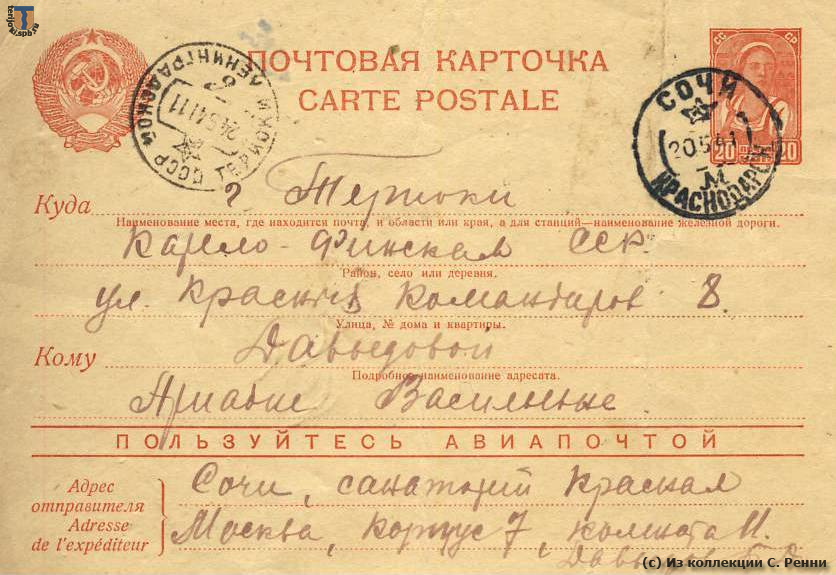 terijoki.spb.ru
ПОЧТОВАЯ КАРТОЧКА
CARTE POSTALE
СССР ТЕРИОКИ ЛЕНИНГРАДСКОЙ
24.5.41.11
СОЧИ
20.5.41
М
КРАСНОДАРСК
СС СР
20 20
Куда г Териоки
Наименование места, где находится почта, и области или края, а для станций—наименование железной дороги.
Карело-Финская ССР.
Район, село или деревня.
ул. Красных Командиров 8.
Улица, № дома и квартиры.
Кому Давыдовой
Подробное наименование адресата.
Ариадне Васильевне.
ПОЛЬЗУЙТЕСЬ АВИАПОЧТОЙ
Адрес отправителя
Adresse de l'expéditeur
Сочи, санаторий Красная
Москва, корпус 7, комната 11.
Давыдов
(c) Из коллекции С. Ренни